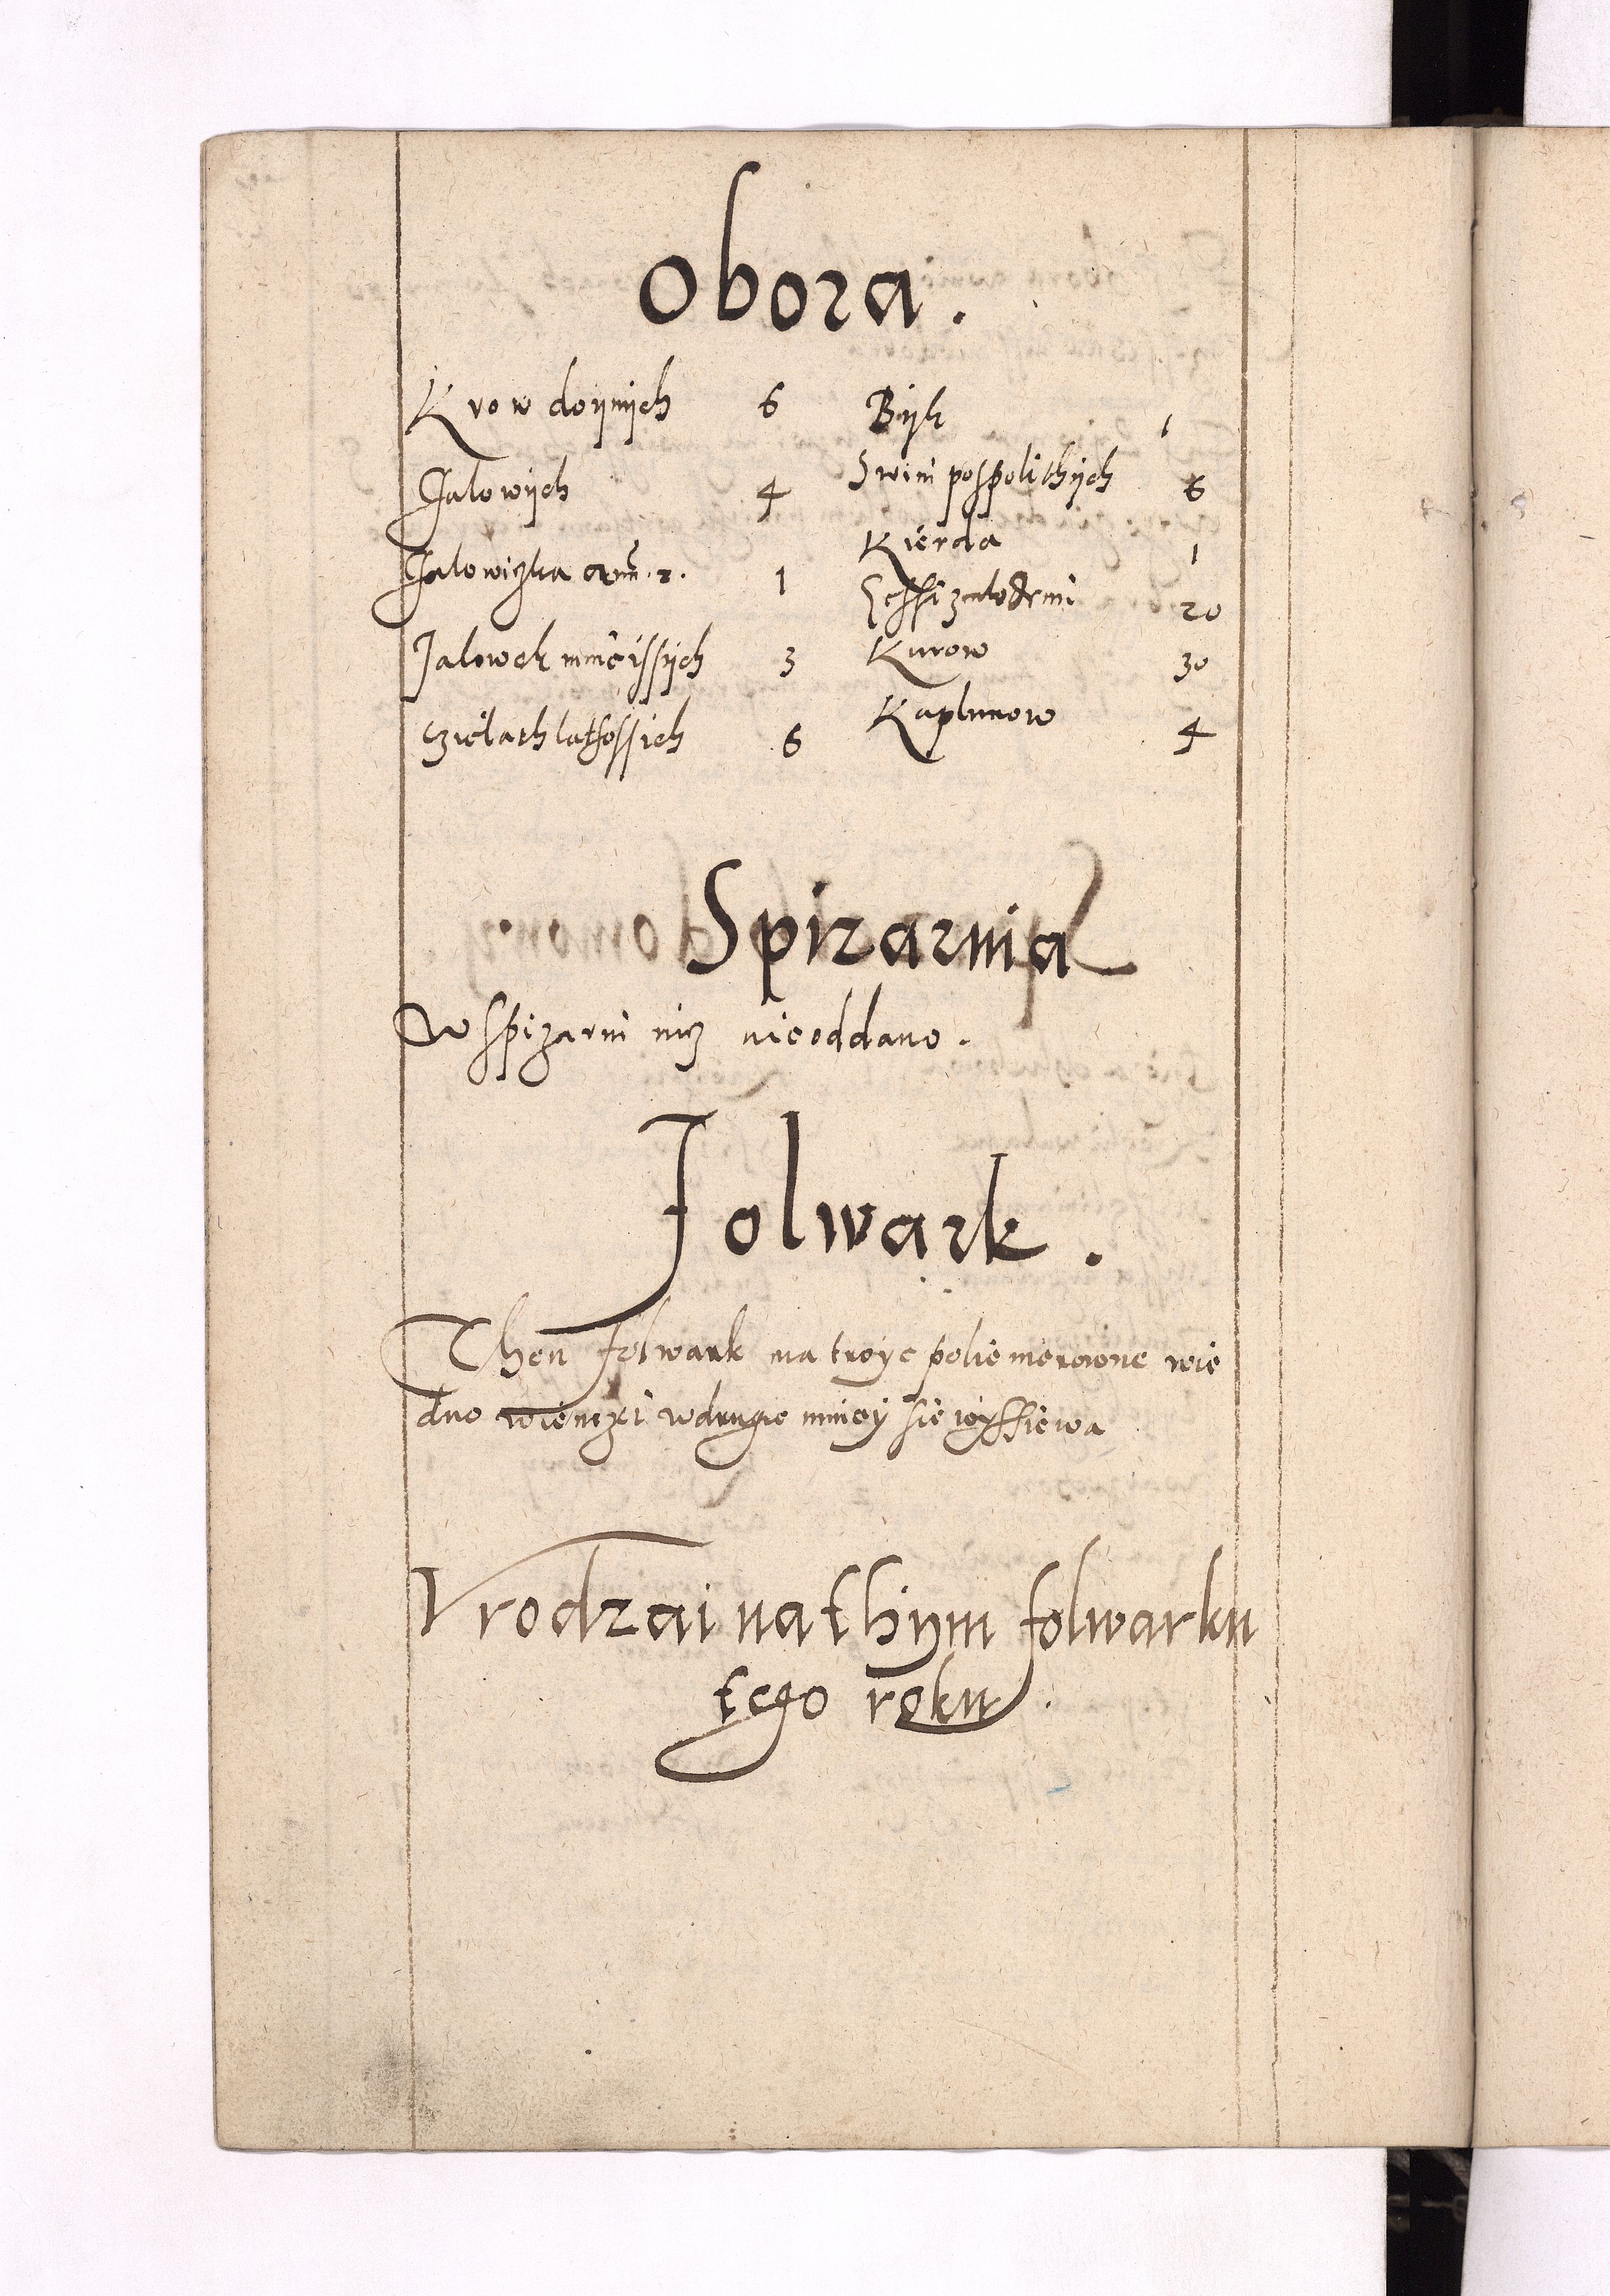 Obora.
Krow doynych 6
Jalowych 4
Jalowiczka ann. 2. 1
Jalowek mnieissych 3
Czielath lathossich 6
Byk 1
Swini pospolithych 6
Kierda 1
Gessi 20
Kurow 30
Kaplunow 4
Spizarnia
W spizarni nicz nieoddano.
Folwark.
Then folwark na troye polie mierzone wie
dno wienczei w drugie mniey sie wyssiewa
Vrodzai na thym folwarku
tego roku.